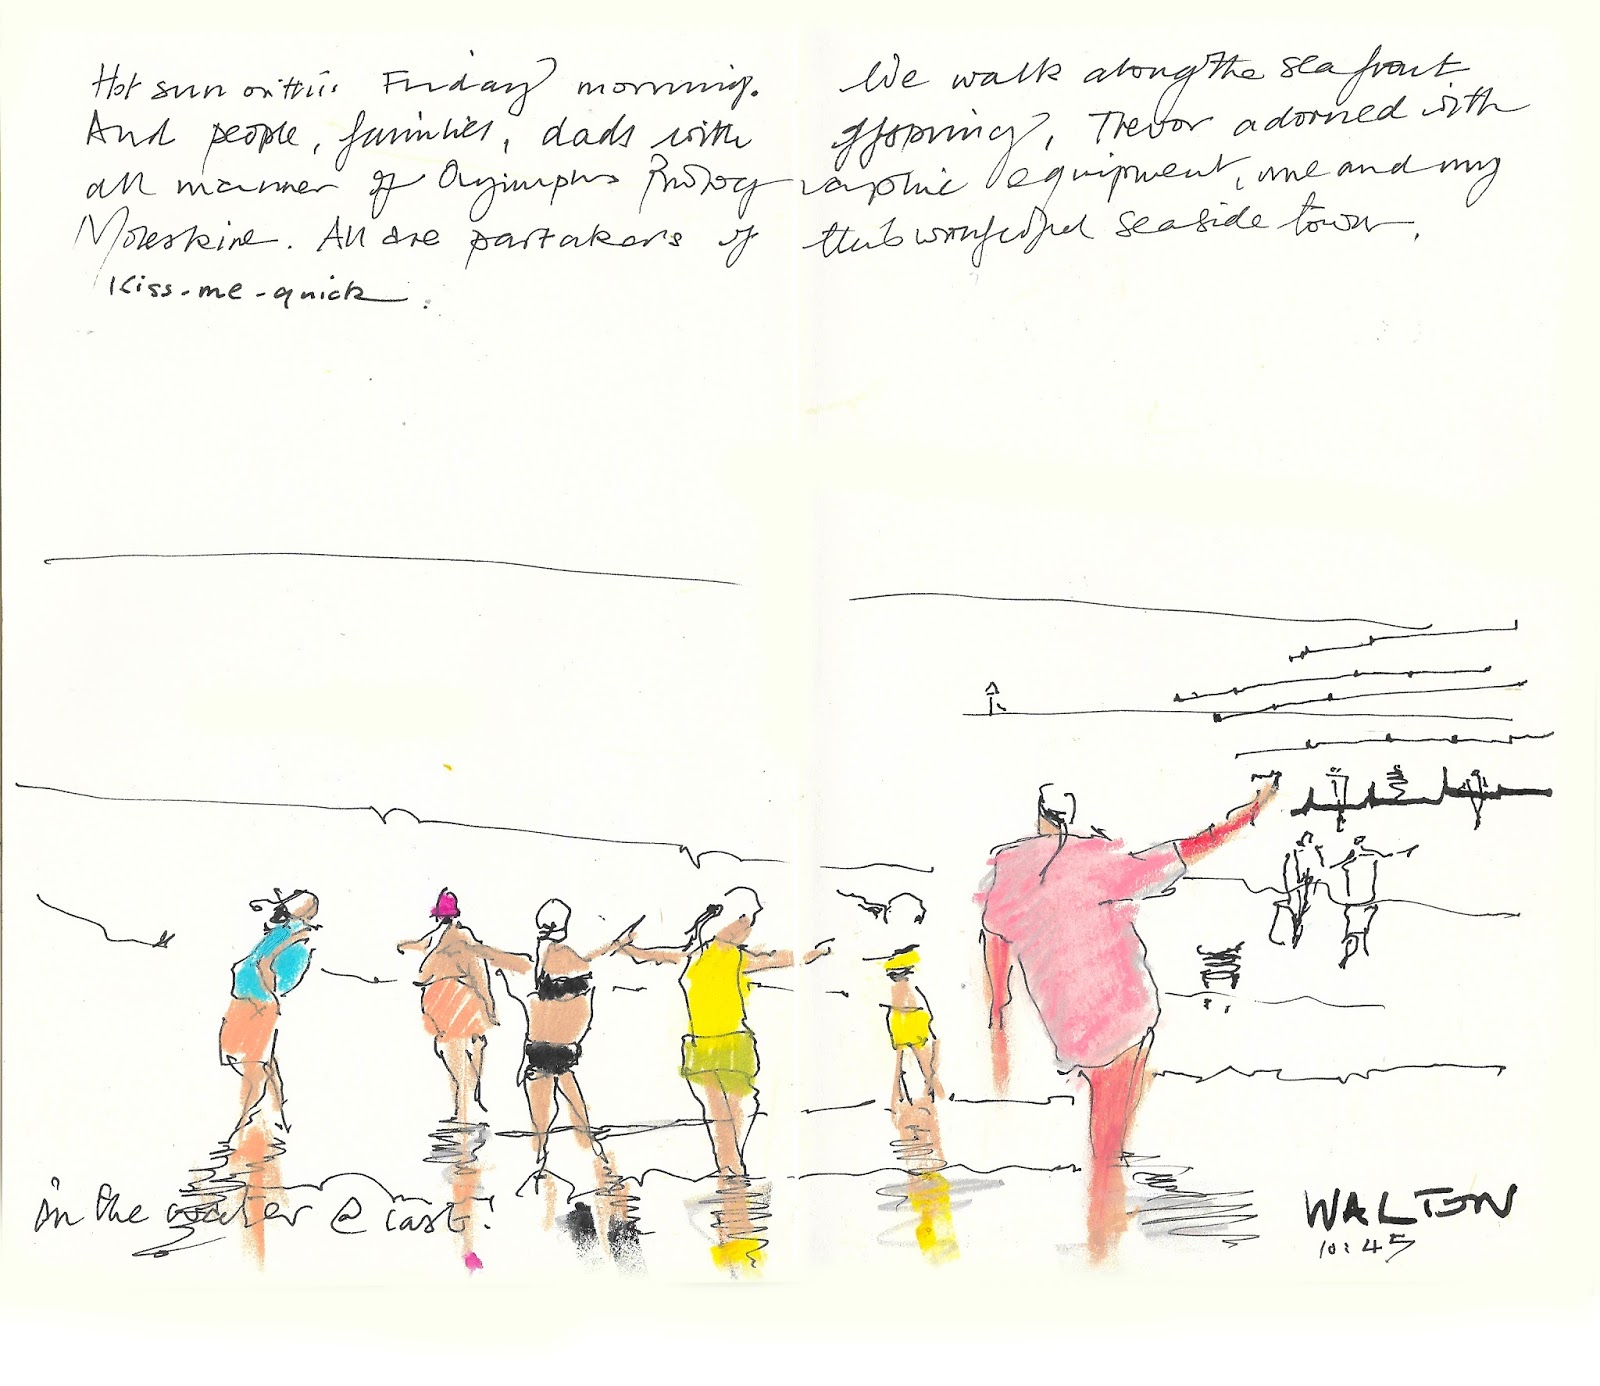 Hot sun on this Friday morning. We walk along the sea front
And people, families, dads with offspring, Trevor adorned with
all manner of Olympus Photographic equipment, me and my
Moleskine. All are partakers of this wonderful seaside town.
Kiss-me-quick.
in the water @ last!
WALTON
10:45